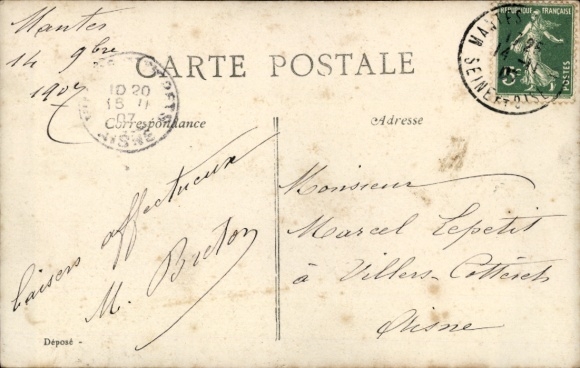 Mantes
14 9bre
1907
CARTE POSTALE
10 20
15 11
07
RÉPUBLIQUE FRANÇAISE
POSTES
MANTES
14 11
SEINE ET OISE
Correspondance
Adresse
baisers affectueux
M. Breton
Monsieur
Marcel Lepetit
à Villers-Cotterêts
Aisne
Déposé -